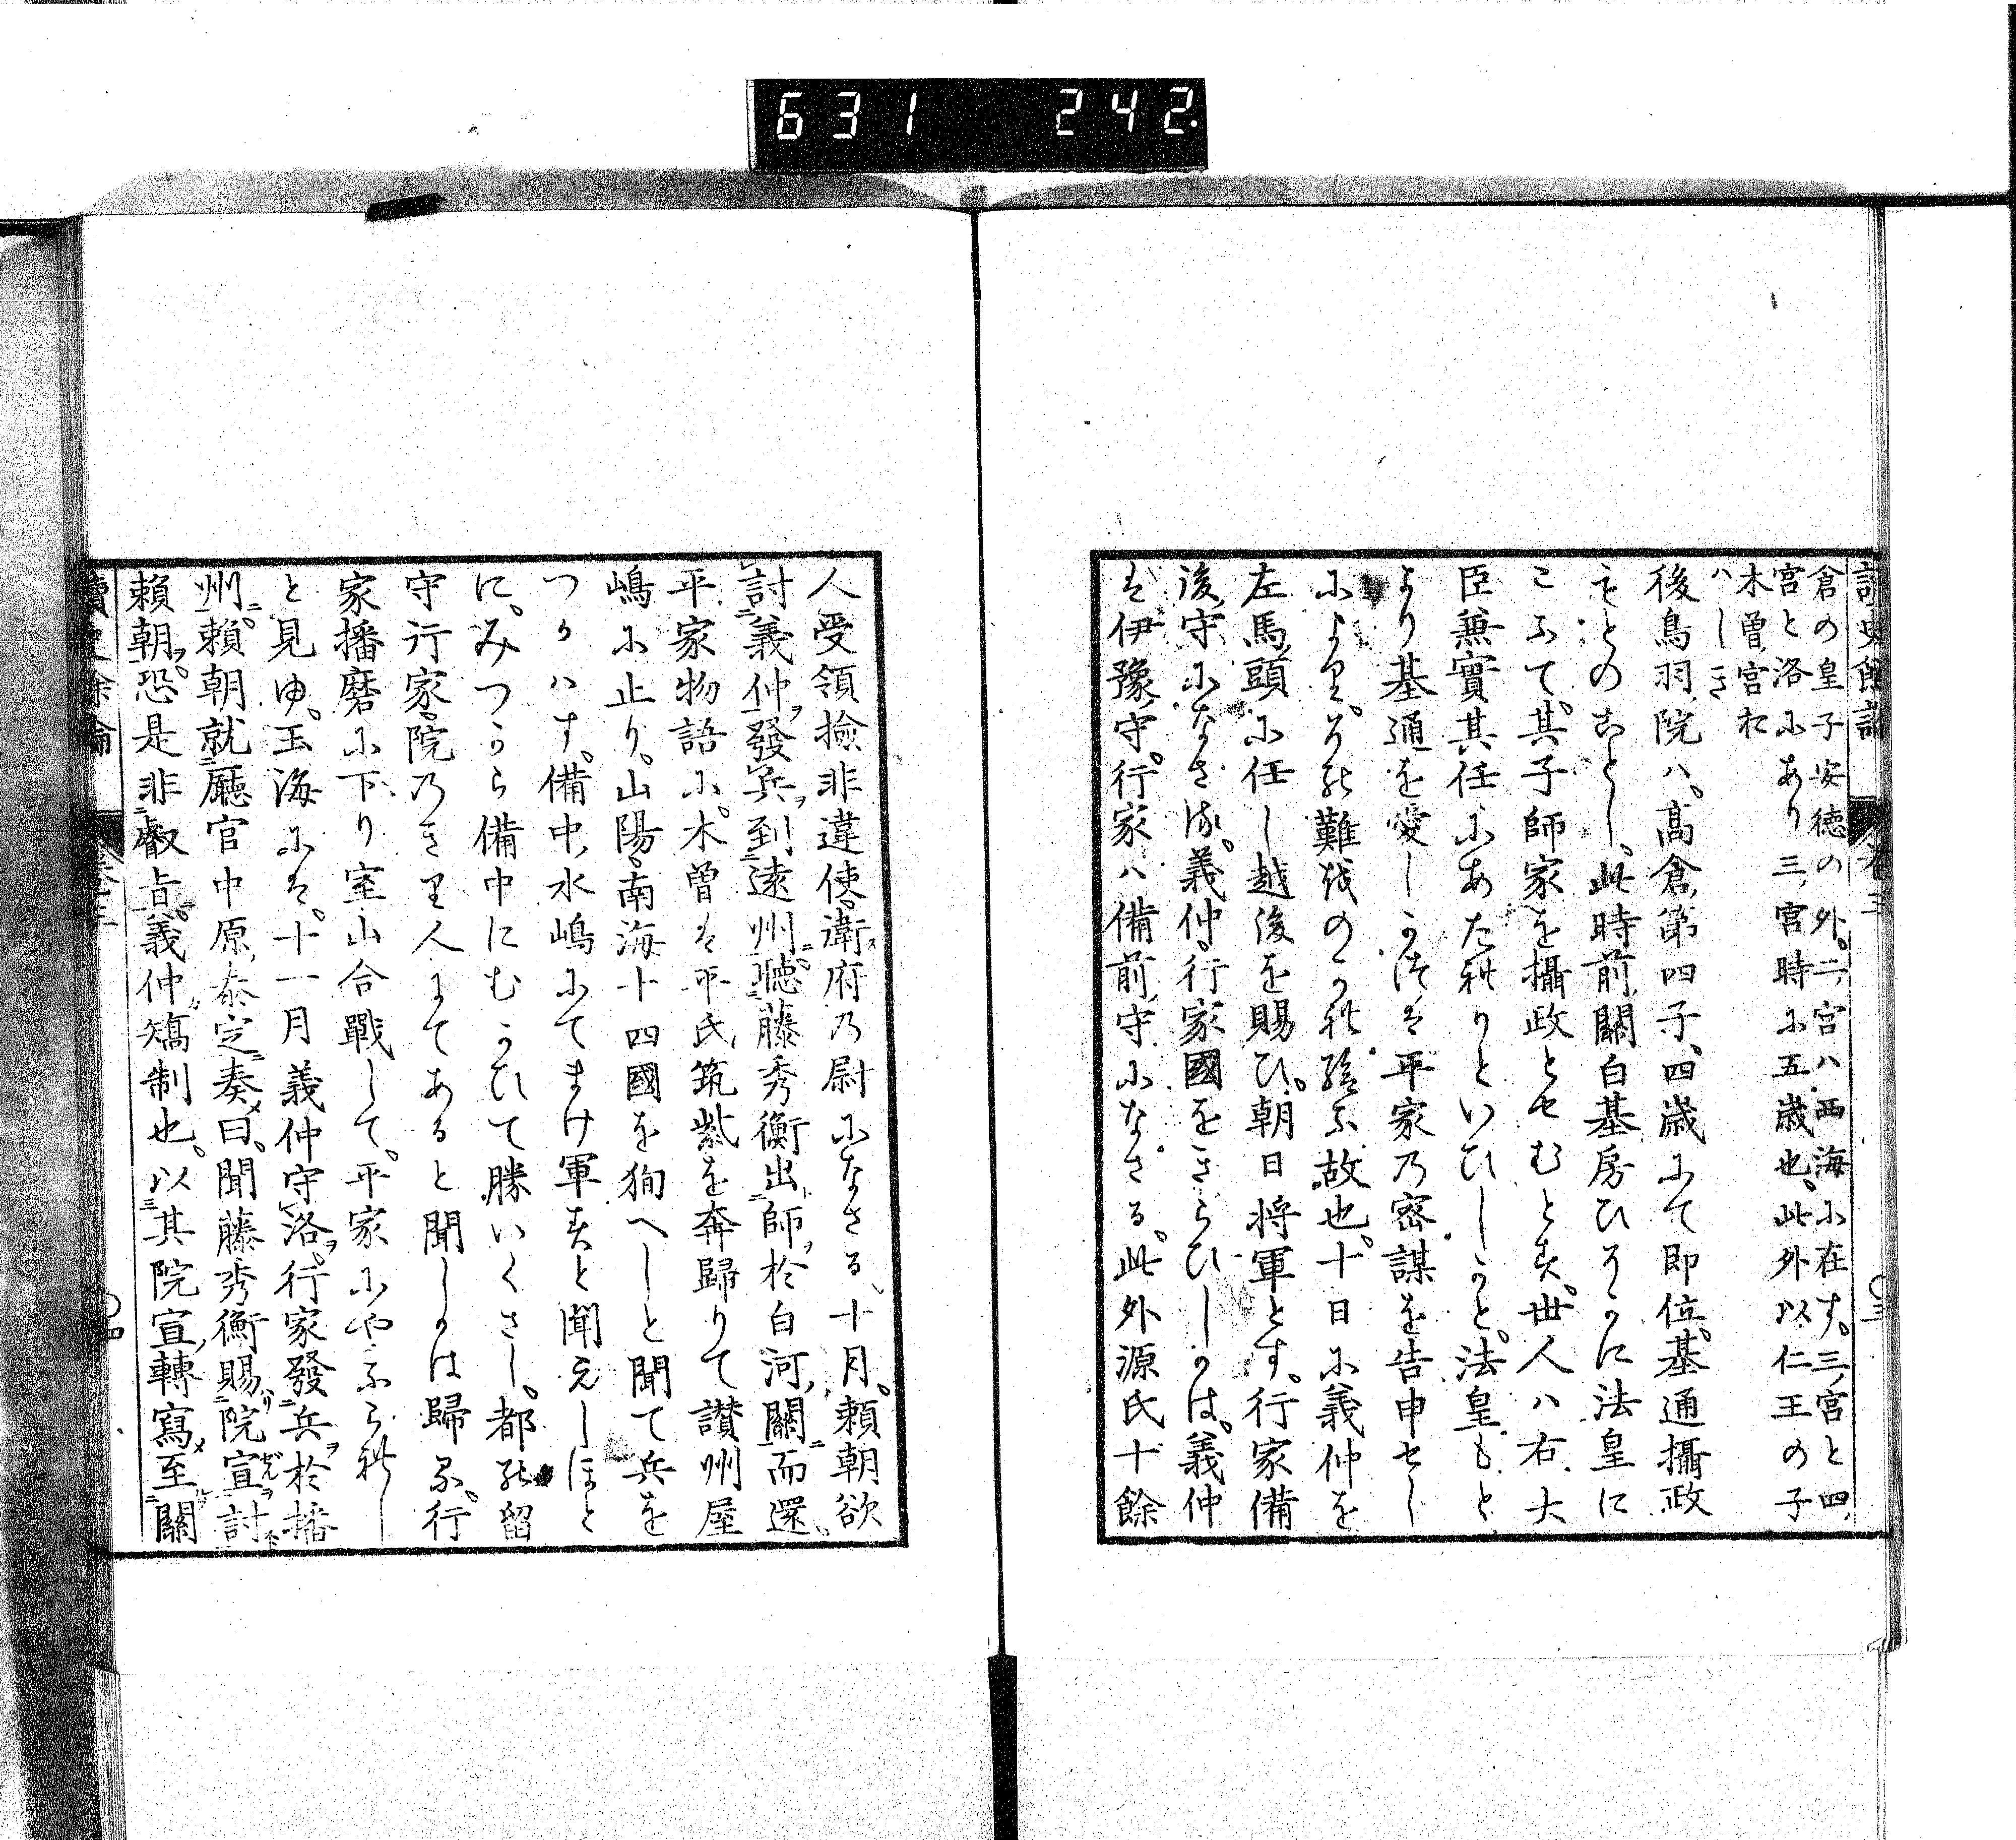 631 242.
倉の皇子安徳の外。二宮ハ西海に在す。三宮と四
宮と洛にあり三宮時に五歳也。此外以仁王の子
木曽宮お
ハしき
後鳥羽院ハ。高倉第四子。四歳にて即位。基通攝政
もとのことし。此時前關白基房ひそかに法皇に
こふて。其子師家を攝政とせむとす。世人ハ右大
臣兼實其任にあたれりといひしかと。法皇もと
より基通を愛しかつは平家乃密謀を告申せし
によりて。その難をのかれ給ふ故也。十日に義仲を
左馬頭に任し越後を賜ひ。朝日将軍とす。行家備
後守になさる。義仲。行家國をきらひしかは。義仲
は伊豫守。行家ハ備前守になさる。此外源氏十餘
人受領撿非違使。衛府乃尉になさる。十月。頼朝欲
討義仲發兵到遠州。聴藤秀衡出師於白河關而還。
平家物語に。木曽は平氏筑紫を奔歸りて讃州屋
嶋に止り。山陽南海十四國を狥へしと聞て兵を
つかハす。備中水嶋にてまけ軍すと聞えしほと
に。みつから備中にむかひて勝いくさし。都の留
守行家。院乃きり人にてあると聞しかは歸る。行
家播磨に下り室山合戰して。平家にやふられし
と見ゆ。玉海には。十一月義仲守洛。行家發兵於播
州。頼朝就廳官中原泰定奏曰。聞藤秀衡賜院宣討
頼朝。恐是非叡旨。義仲矯制也。以其院宣轉寫至關